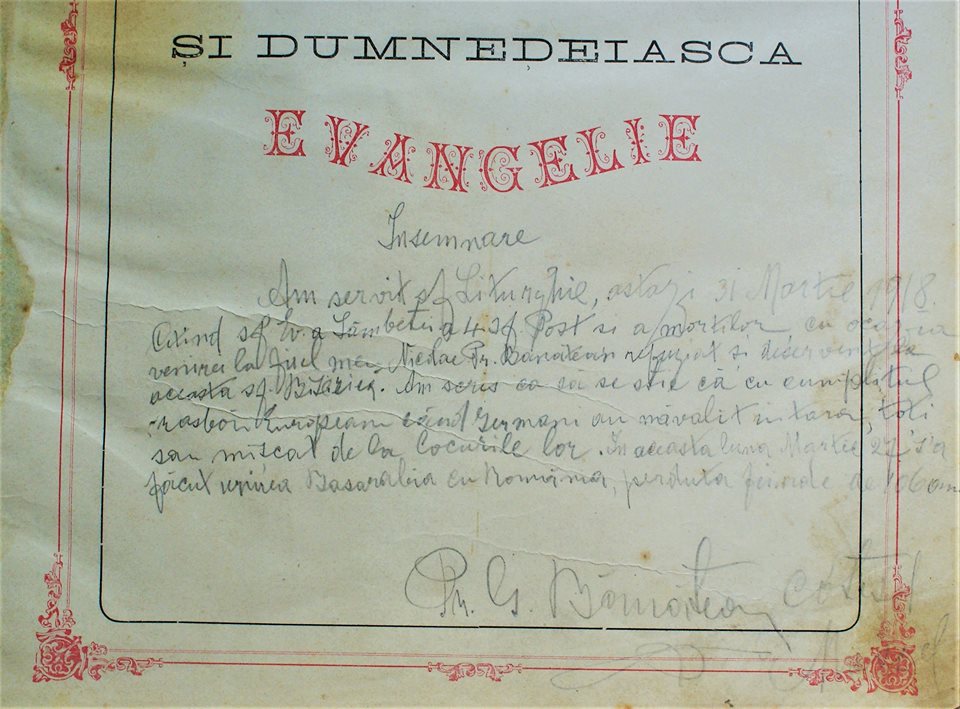 ȘI DUMNEDEIASCA
EVANGELIE
Insemnare
Am servit sf Liturghie, astazi 31 Martie 1918.
Citind sf Ev. a Sâmbetii a 4 Sf Post si a mortilor cu ocazia
venirei la fiul meu Nicolae Pr. Bănățean refugiat si deservent la
aceasta sf Biserica. Am scris ca să se stie că cu cumplitul
rasboi European când Germani au năvalit in tara, toti
sau miscat de la locurile lor. In aceasta luna Martie 27 s'a
făcut unirea Basarabia cu România, perduta fiind de 106 ani
Pr. G. Bănățean